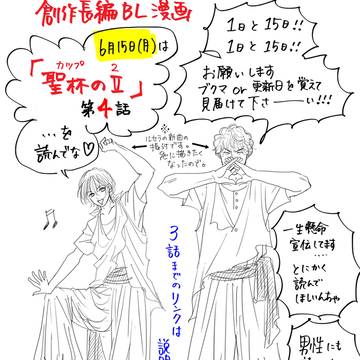 創作長編BL漫画
6月15日(月)は
カップ 2
「聖杯のⅡ」
第4話
…を
読んでな♡
1日と15日!!
1日と15日!!
お願いします
ブクマ or 更新日を覚えて
見届けて下さーーい!!!
ルセラの新曲の
振付です。
急に描きたく
なったので。
3話までのリンクは
一生懸命
宣伝してます
……
とにかく
読んで
ほしいんちゃ
男性にも